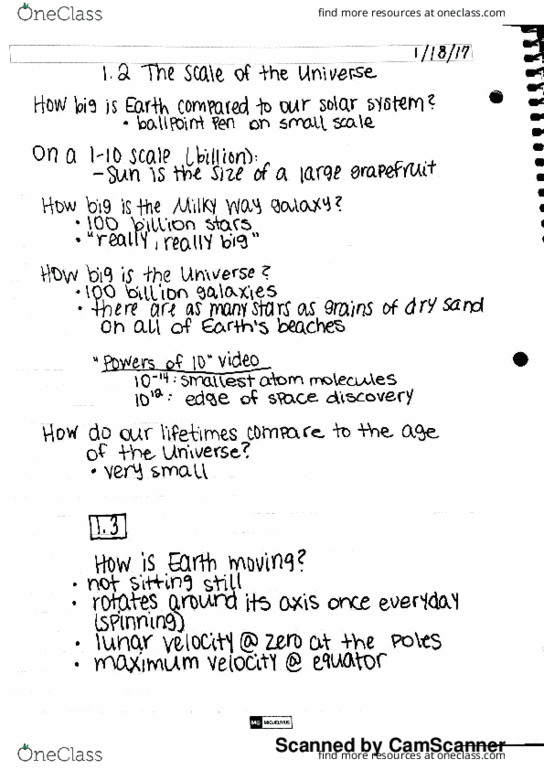 OneClass
find more resources at oneclass.com
1/18/17
1.2 The Scale of the Universe
How big is Earth compared to our solar system?
• ballpoint pen on small scale
On a 1-10 scale (billion):
- Sun is the size of a large grapefruit
How big is the Milky Way galaxy?
• 100 billion stars
• "really, really big"
How big is the Universe?
• 100 billion galaxies
• there are as many stars as grains of dry sand
on all of Earth's beaches
"Powers of 10" video
10⁻¹⁴: smallest atom molecules
: edge of space discovery
How do our lifetimes compare to the age
of the Universe?
• very small
1.3
How is Earth moving?
• not sitting still
• rotates around its axis once everyday
(spinning)
• lunar velocity @ zero at the poles
• maximum velocity @ equator
Scanned by CamScanner
OneClass
find more resources at oneclass.com